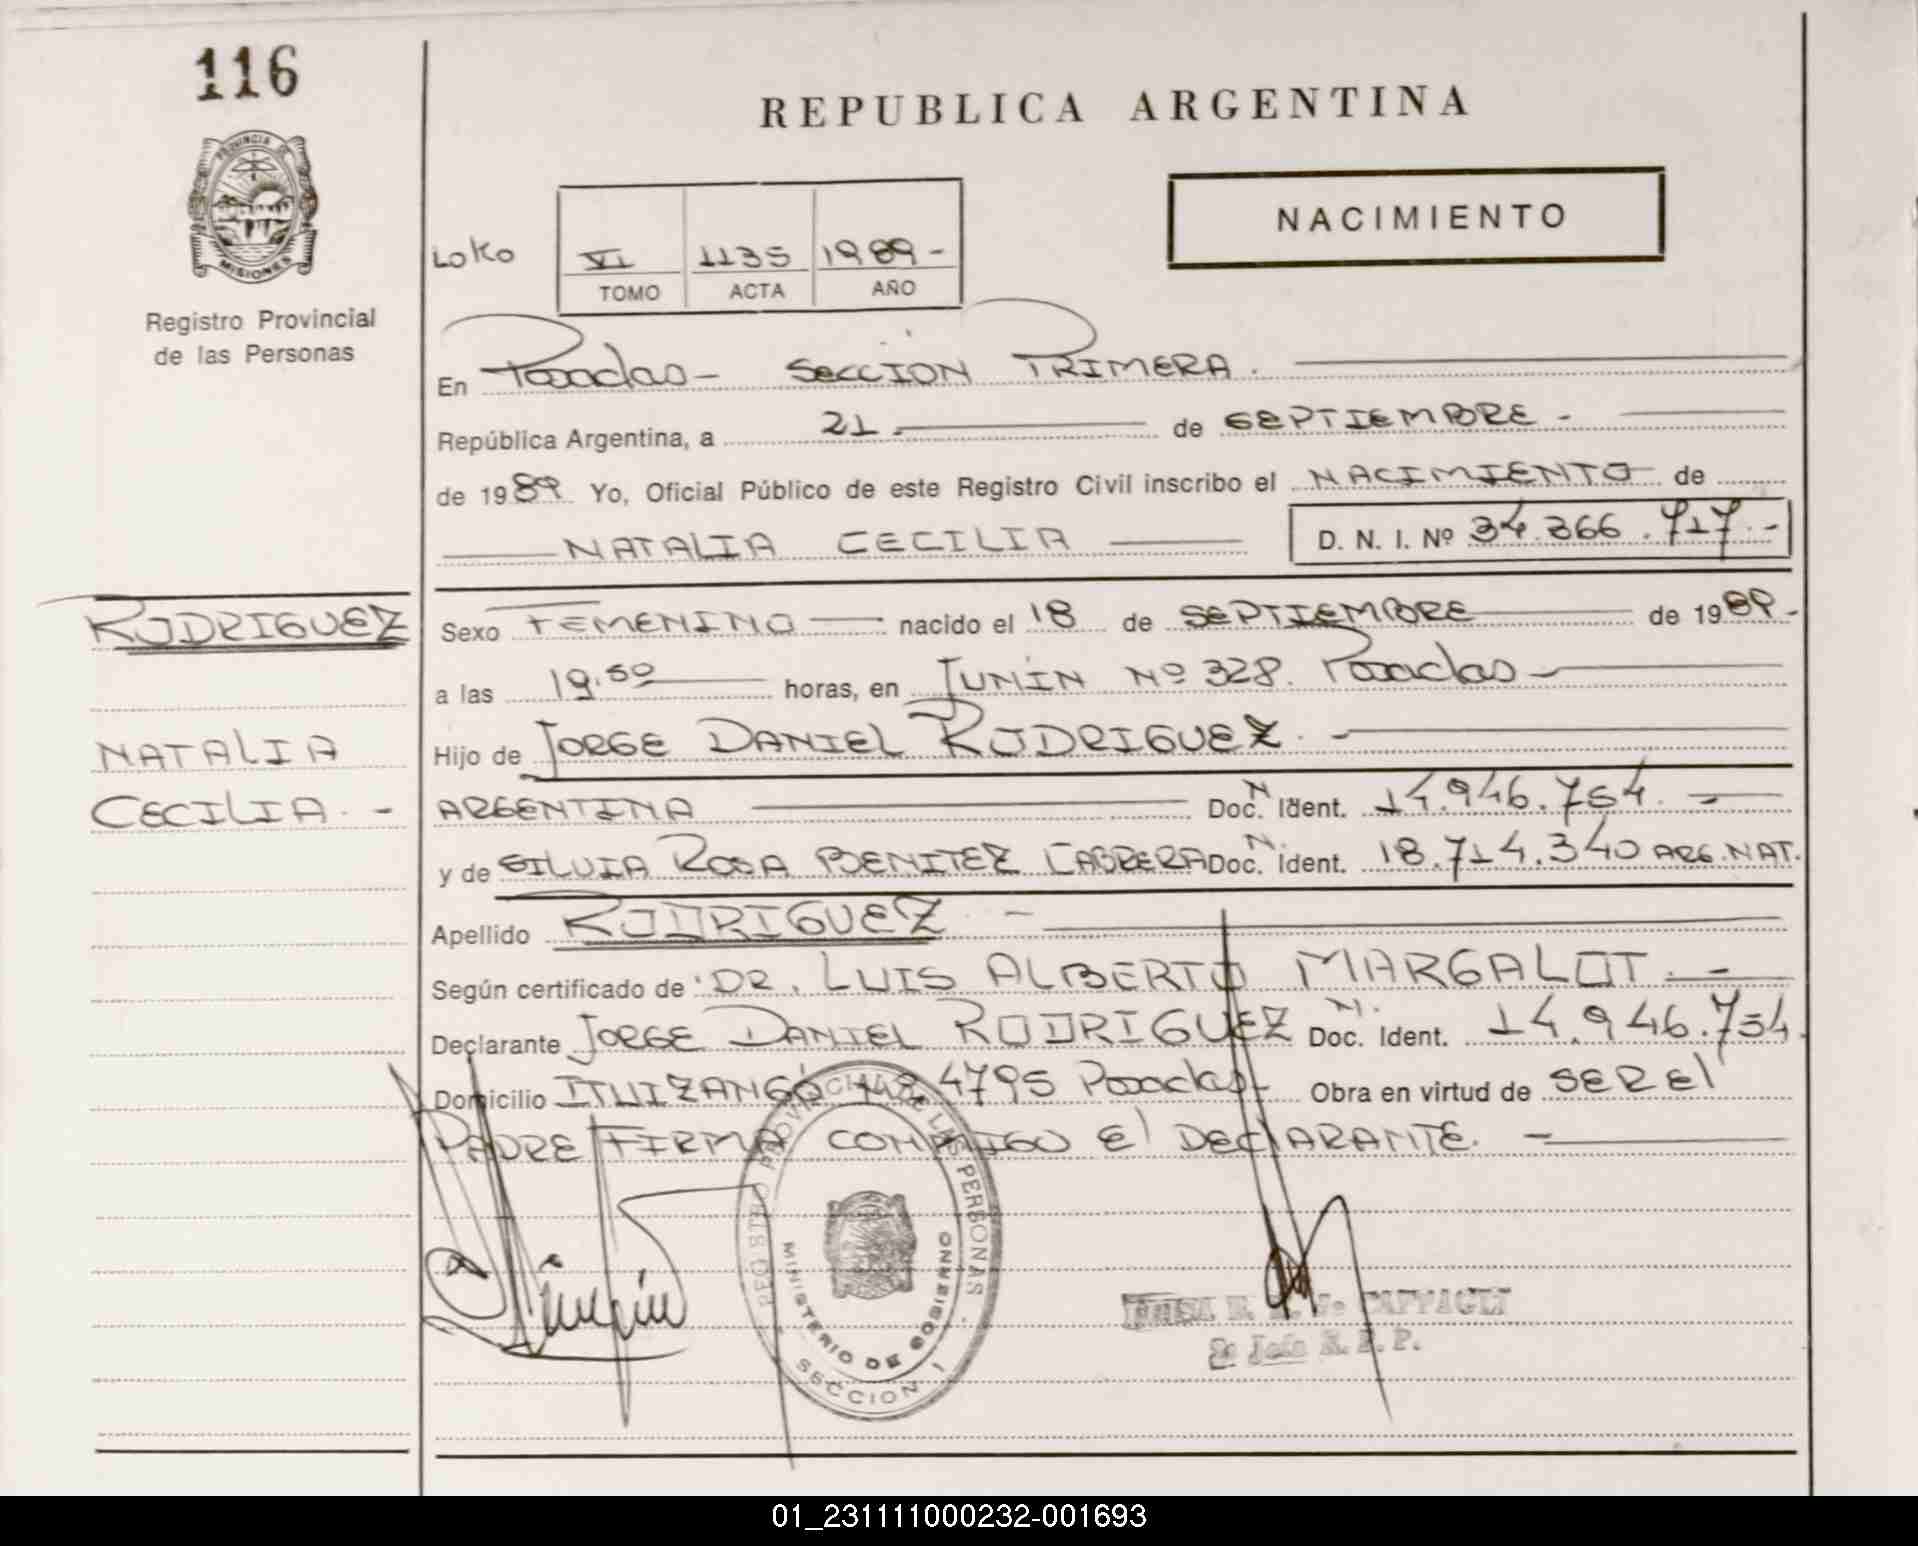 116
REPUBLICA ARGENTINA
PROVINCIA DE
MISIONES
Registro Provincial
de las Personas
NACIMIENTO
LOKO
VI 1135 1989-
TOMO ACTA AÑO
En Posadas- SECCION PRIMERA.
República Argentina, a 21 de SEPTIEMBRE-
de 1989 Yo, Oficial Público de este Registro Civil inscribo el NACIMIENTO de
NATALIA CECILIA D. N. I. Nº 34.366.717.-
RODRIGUEZ
NATALIA
CECILIA.-
Sexo FEMENINO nacido el 18 de SEPTIEMBRE de 1989-
a las 19.50 horas, en JUNIN Nº 328. Posadas-
Hijo de JORGE DANIEL RODRIGUEZ.-
ARGENTINA Doc. N Ident. 14.946.754.-
y de SILVIA ROSA BENITEZ CABRERA Doc. N. Ident. 18.714.340 ARG. NAT.
Apellido RODRIGUEZ.-
Según certificado de DR. LUIS ALBERTO MARGALOT.-
Declarante JORGE DANIEL RODRIGUEZ N. Doc. Ident. 14.946.754.
Domicilio ITUIZANGO 4795 Posadas- Obra en virtud de SER El
PADRE FIRMA CONMIGO El DEClARANTE.-
REGISTRO PROVINCIAL DE LAS PERSONAS
MINISTERIO DE GOBIERNO
SECCION 1
2º Jefe R. P. P.
01_231111000232-001693